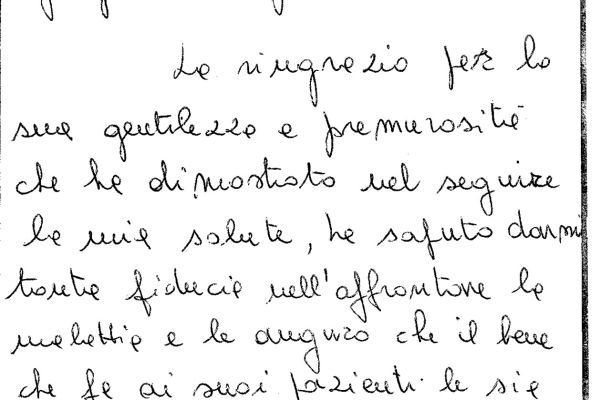 La ringrazio per la
sua gentilezza e premurosità
che ha dimostrato nel seguire
la mia salute, ha saputo darmi
tanta fiducia nell'affrontare la
malattia e le auguro che il bene
che fa ai suoi pazienti le sia